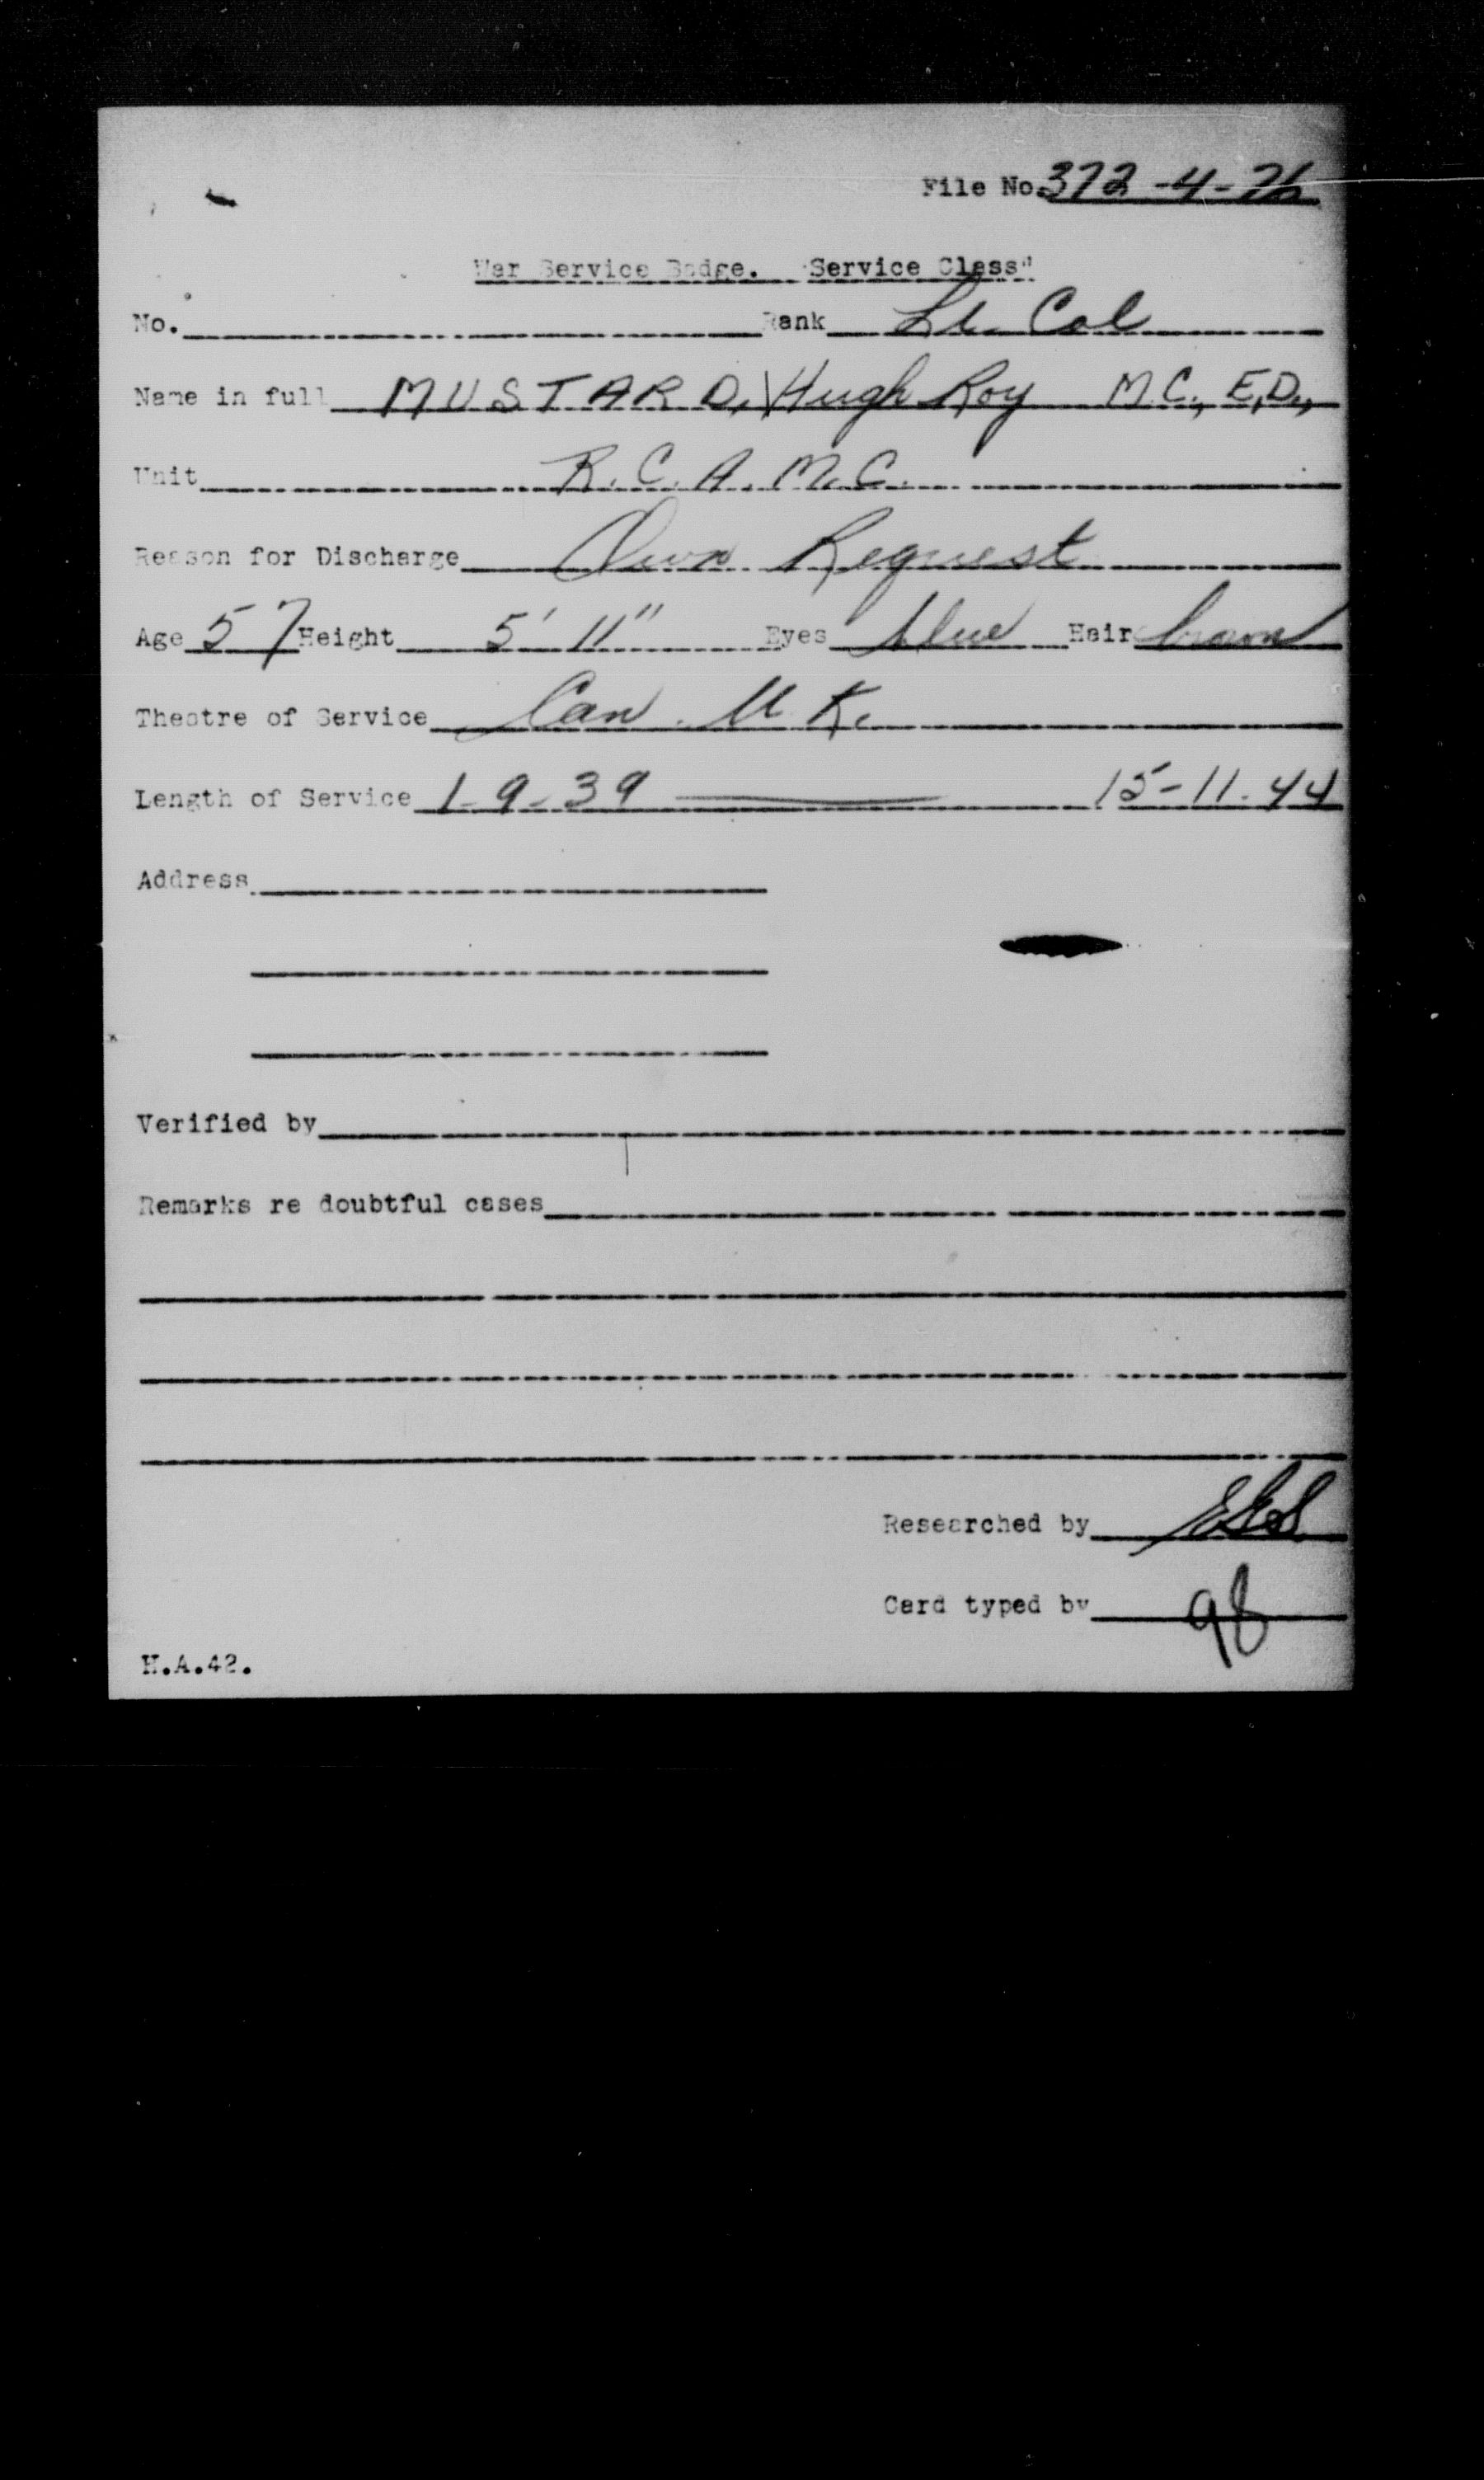 File No. 372-4-76
War Service Badge. "Service Class"
No. Rank Lt. Col
Name in full MUSTARD, Hugh Roy M.C., E.D.,
Unit R.C.A.M.C.
Reason for Discharge Own Request
Age 57 Height 5' 11" Eyes blue Hair brown
Theatre of Service Can. U.K.
Length of Service 1-9-39 — 15-11-44
Address
Verified by
Remarks re doubtful cases
Researched by
Card typed by
H.A.42.